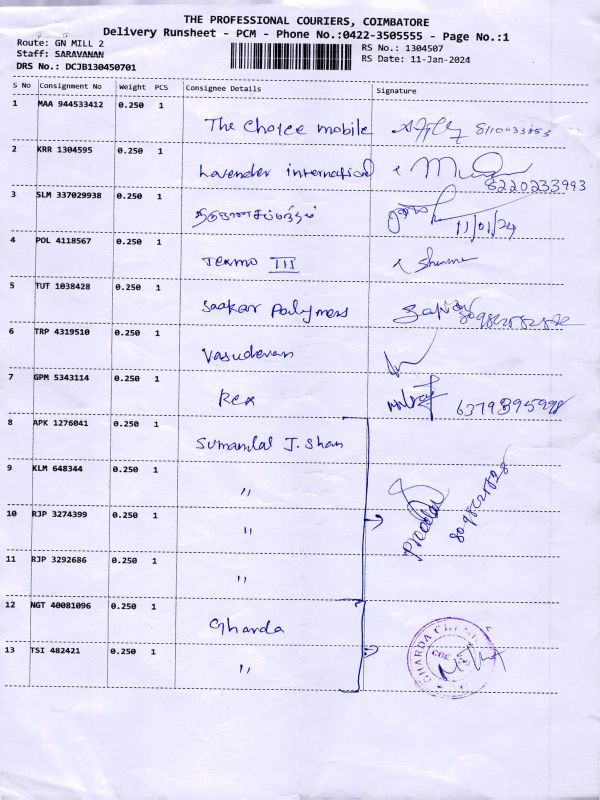 THE PROFESSIONAL COURIERS, COIMBATORE
Delivery Runsheet - PCM - Phone No.:0422-3505555 - Page No.:1
Route: GN MILL 2
RS No.: 1304507
Staff: SARAVANAN
RS Date: 11-Jan-2024
DRS No.: DCJB130450701
S No Consignment No Weight PCS Consignee Details Signature
1 MAA 944533412 0.250 1 The Choice mobile 8110033353
2 KRR 1304595 0.250 1 Lavender international 8220233993
3 SLM 337029938 0.250 1 11/01/24
4 POL 4118567 0.250 1 Texmo III
5 TUT 1038428 0.250 1 Saakar Polymers
6 TRP 4319510 0.250 1 Vasudevan
7 GPM 5343114 0.250 1 Rex 6379895998
8 APK 1276041 0.250 1 Sumanlal J. Shah
9 KLM 648344 0.250 1 "
10 RJP 3274399 0.250 1 "
11 RJP 3292686 0.250 1 "
12 NGT 40081096 0.250 1 Gharda
13 TSI 482421 0.250 1 "
GHARDA